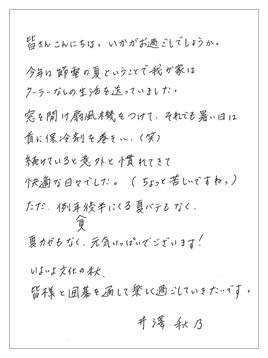 皆さんこんにちは。いかがお過ごしでしょうか。
今年は節電の夏ということで我が家は
クーラーなしの生活を送っていました。
窓を開け扇風機をつけて、それでも暑い日は
首に保冷剤を巻き…、(笑)
続けていると意外と慣れてきて
快適な日々でした。(ちょっと苦しいですねっ)
ただ、例年後半にくる夏バテもなく、
夏カゼもなく、元気いっぱいでございます!
いよいよ文化の秋、
皆様と囲碁を通して楽しく過ごしていきたいです。
井澤 秋乃